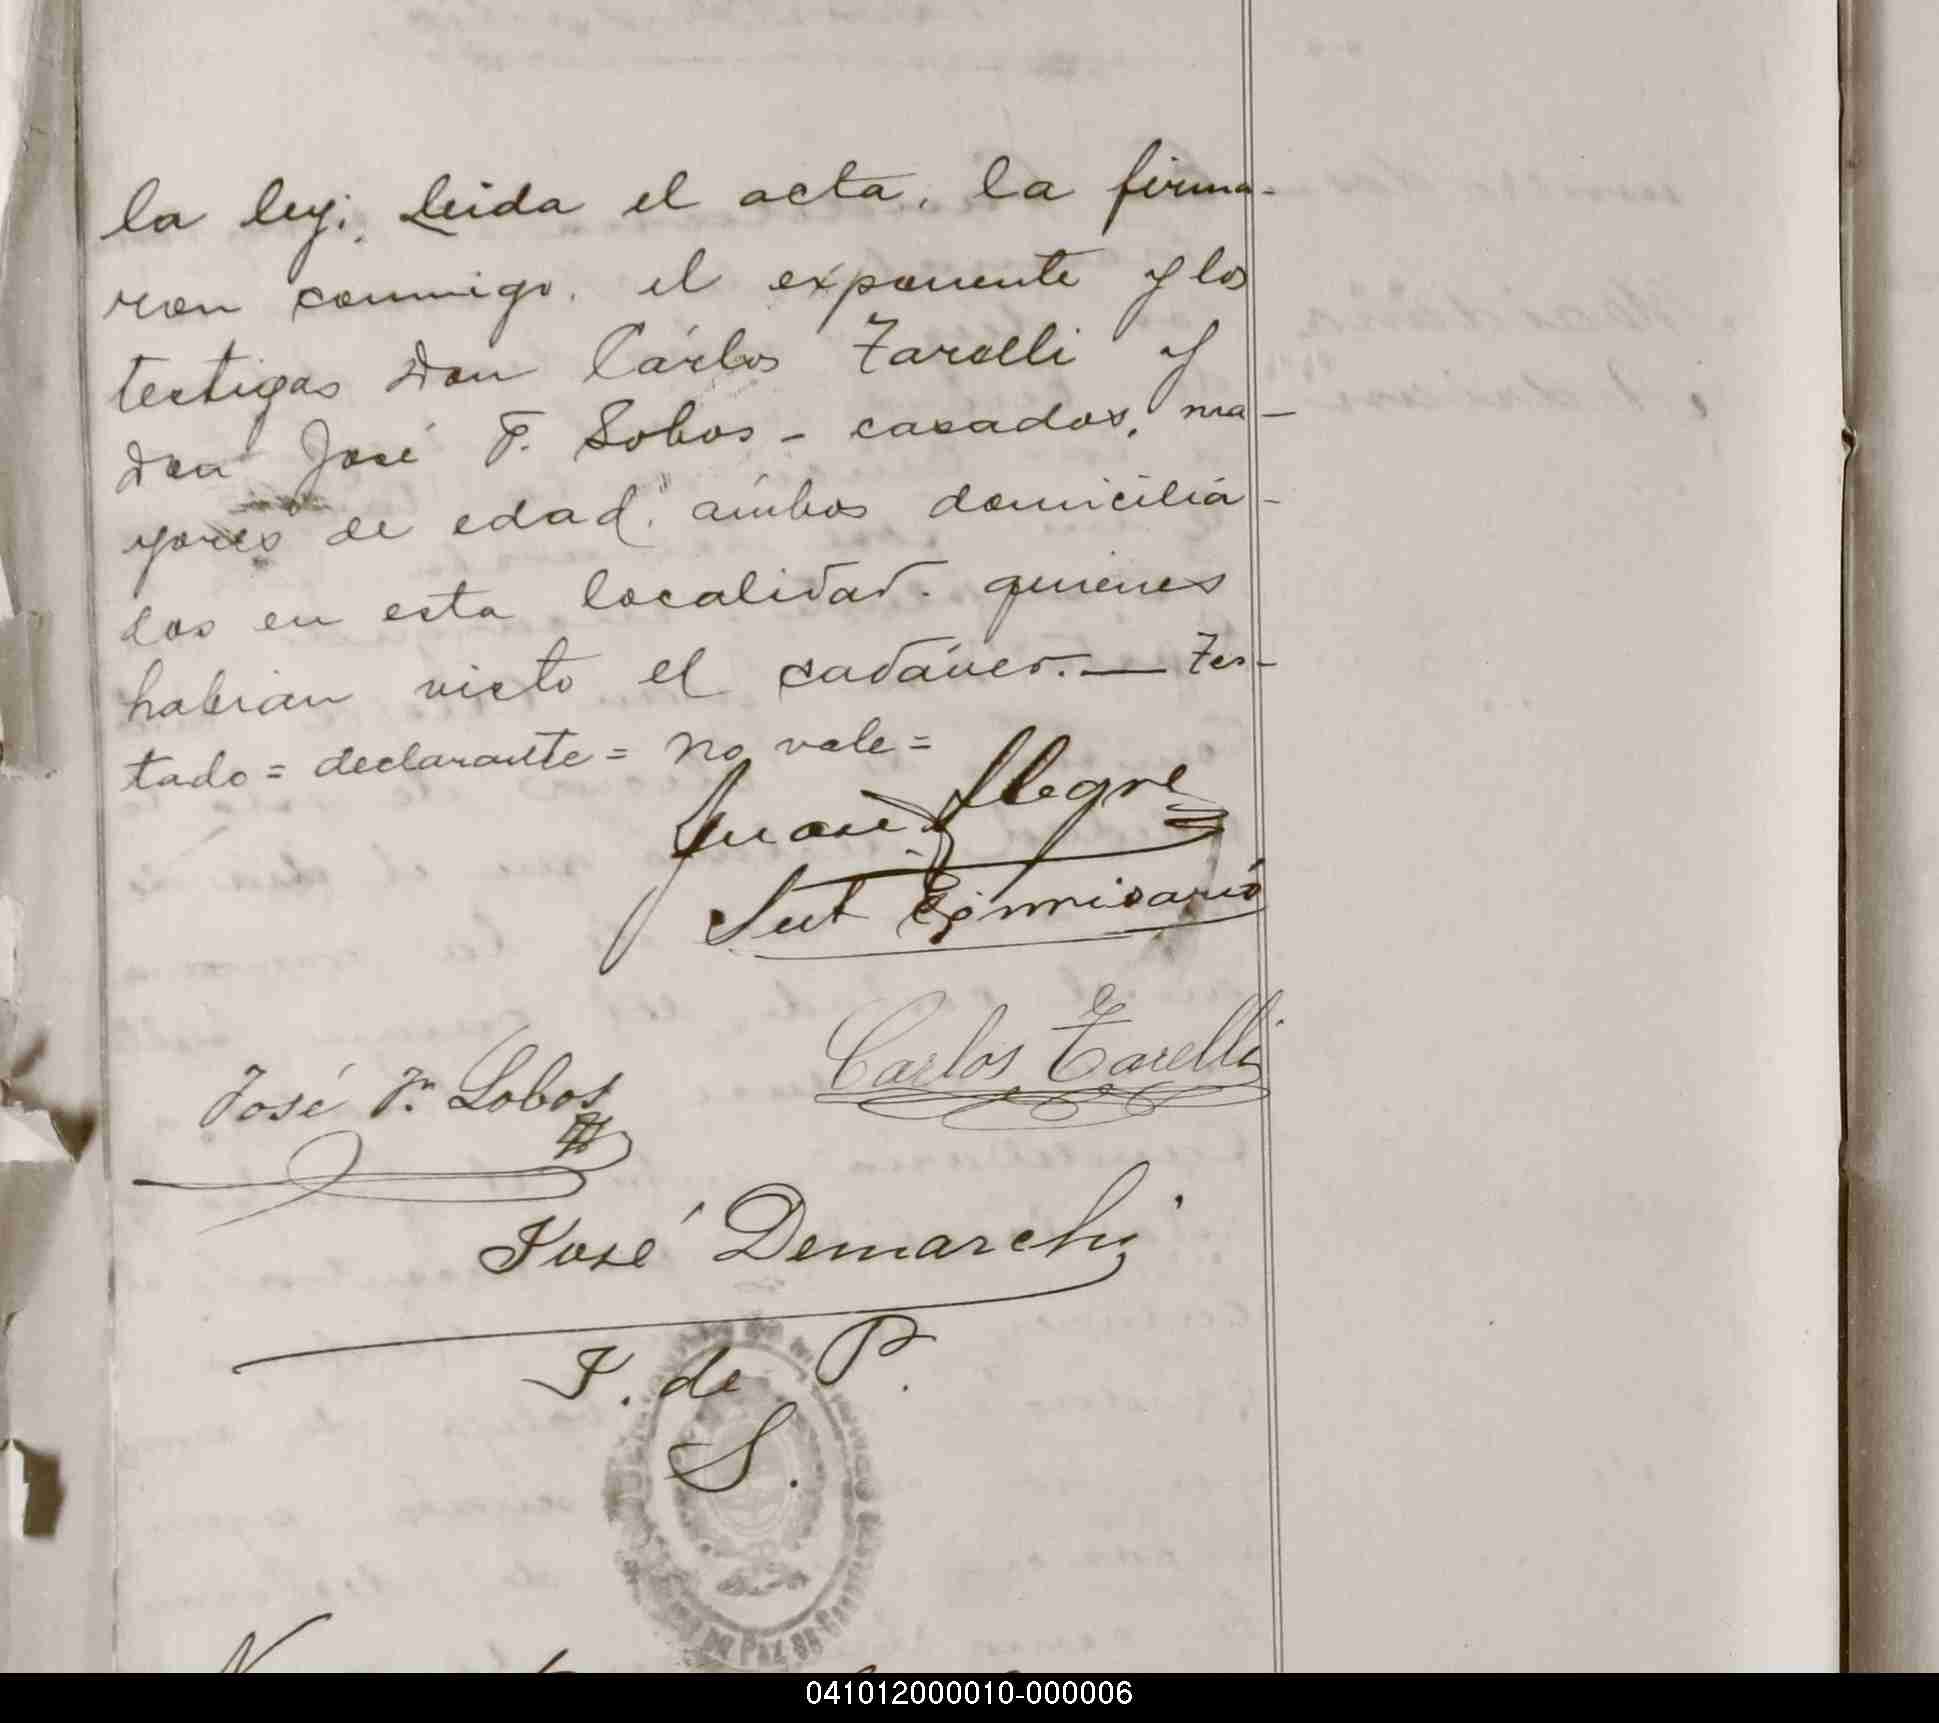 la ley; Leida el acta, la firma-
ron conmigo, el exponente y los
testigos Don Cárlos Tarelli y
don José F. Lobos - casados, ma-
yores de edad, ambos domicilia-
dos en esta localidad. quienes
habian visto el cadáver. — Tes-
tado = declarante = no vale =
Juan Alegre
Sub Comisario
Carlos Tarelli
José F. Lobos
José Demarchi
J. de P.
S.
DE PAZ DE
041012000010-000006